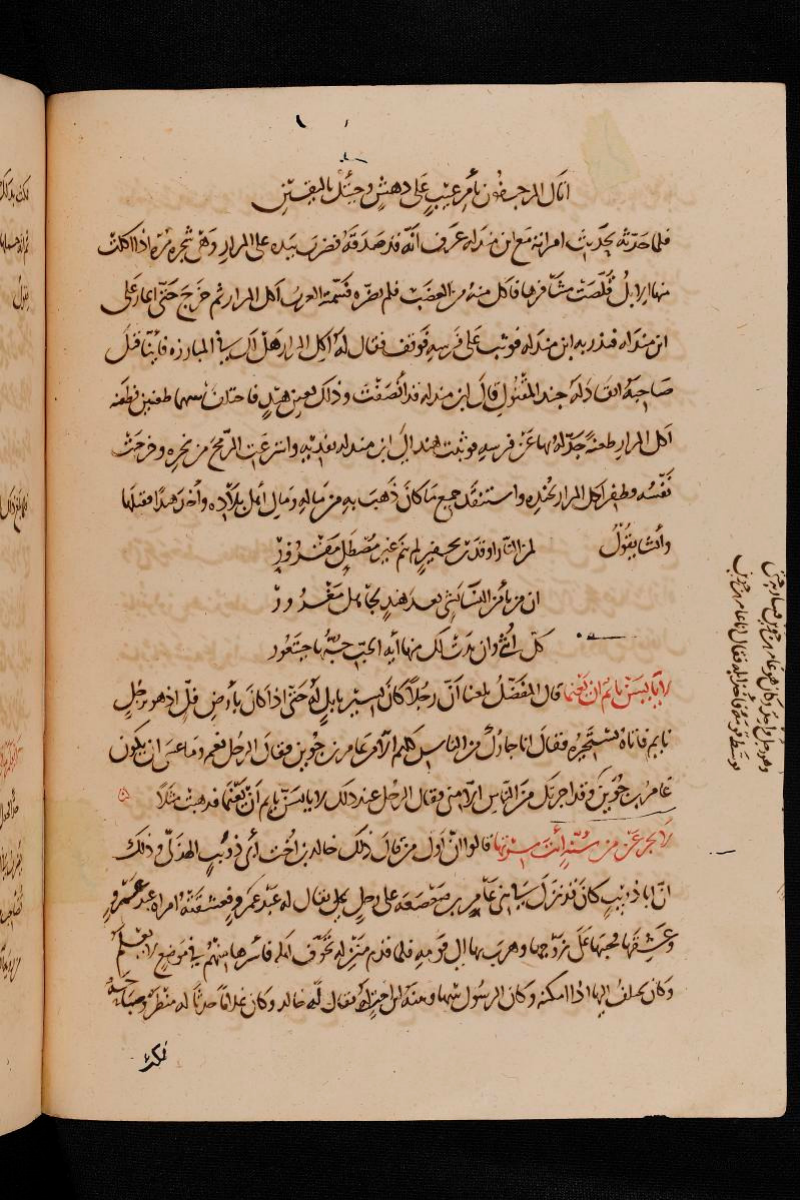 اتاك المرجفون بأمر غيب على دهش وجئتك باليقين
فلما حدثه بحديث امراته مع ابن مندله عرف انه قد صدقه فضرب بيده على المرار وهى شجرة مرة اذا اكلت
منها الابل قلصت مشافرها فاكل منه من الغضب فلم يضره فسمته العرب آكل المرار ثم خرج حتى اغار على
ابن مندله فنذر به ابن مندله فوثب على فرسه فوقف فقال له آكل المرار هل لك في المبارزه فاينا قتل
صاحبه انقاد له جند المقتول قال ابن مندله قد انصفت وذلك بعين هند فاختلف بينهما طعنتين فطعنه
آكل المرار طعنة جدله بها عن فرسه فوثبت هند الى ابن مندله تفديه وانتزعت الرمح من نحره وخرجت
نفسه وظفر آكل المرار بجنده واستنقذ جميع ما كان ذهب به من ماله ومال اهل بلاده واخذ هندا فقتلها
وانشا يقول لمن النار اوقدت بحفير لم ينم غير مصطل مقرور
ان من يأمن النسآ بشى بعد هند لجاهل مغرور
كل انثى وان بدت لك منها اية الحب حبها خيتعور
لا يا يسن نايم ان يغنما قال المفضل بلغنا أن رجلا كان يسير بابل له حتى اذا كان بأرض فل اذ هو برجل
نايم فاتاه يستجيره فقال انا جارك من الناس كلهم الا من عامر بن جوين فقال الرجل نعم وما عسى ان يكون
عامر بن جوين وقد اجرتك من الناس الا منى فقال الرجل عند ذلك لا ييأسن نايم أن يغنما فذهبت مثلا
لا تجزعن من سنة أنت سرتها قالوا ان اول من قال ذلك خالد بن اخت ابى ذويب الهذلى وذلك
ان ابا ذويب كان قد نزل في بنى عامر بن صعصعه على رجل يقال له عبد عمرو فعشقته امراة عبد عمرو
وعشقها فخببها على زوجها وهرب بها الى قومه فلما قدم منزله تخوف اهله فاسرها منهم في موضع لا يعلم
وكان يختلف اليها اذا امكنه وكان الرسول بينها وبينه ابن اخت له يقال له خالد وكان غلاما حدثا له منظر وصباحه
فمكث